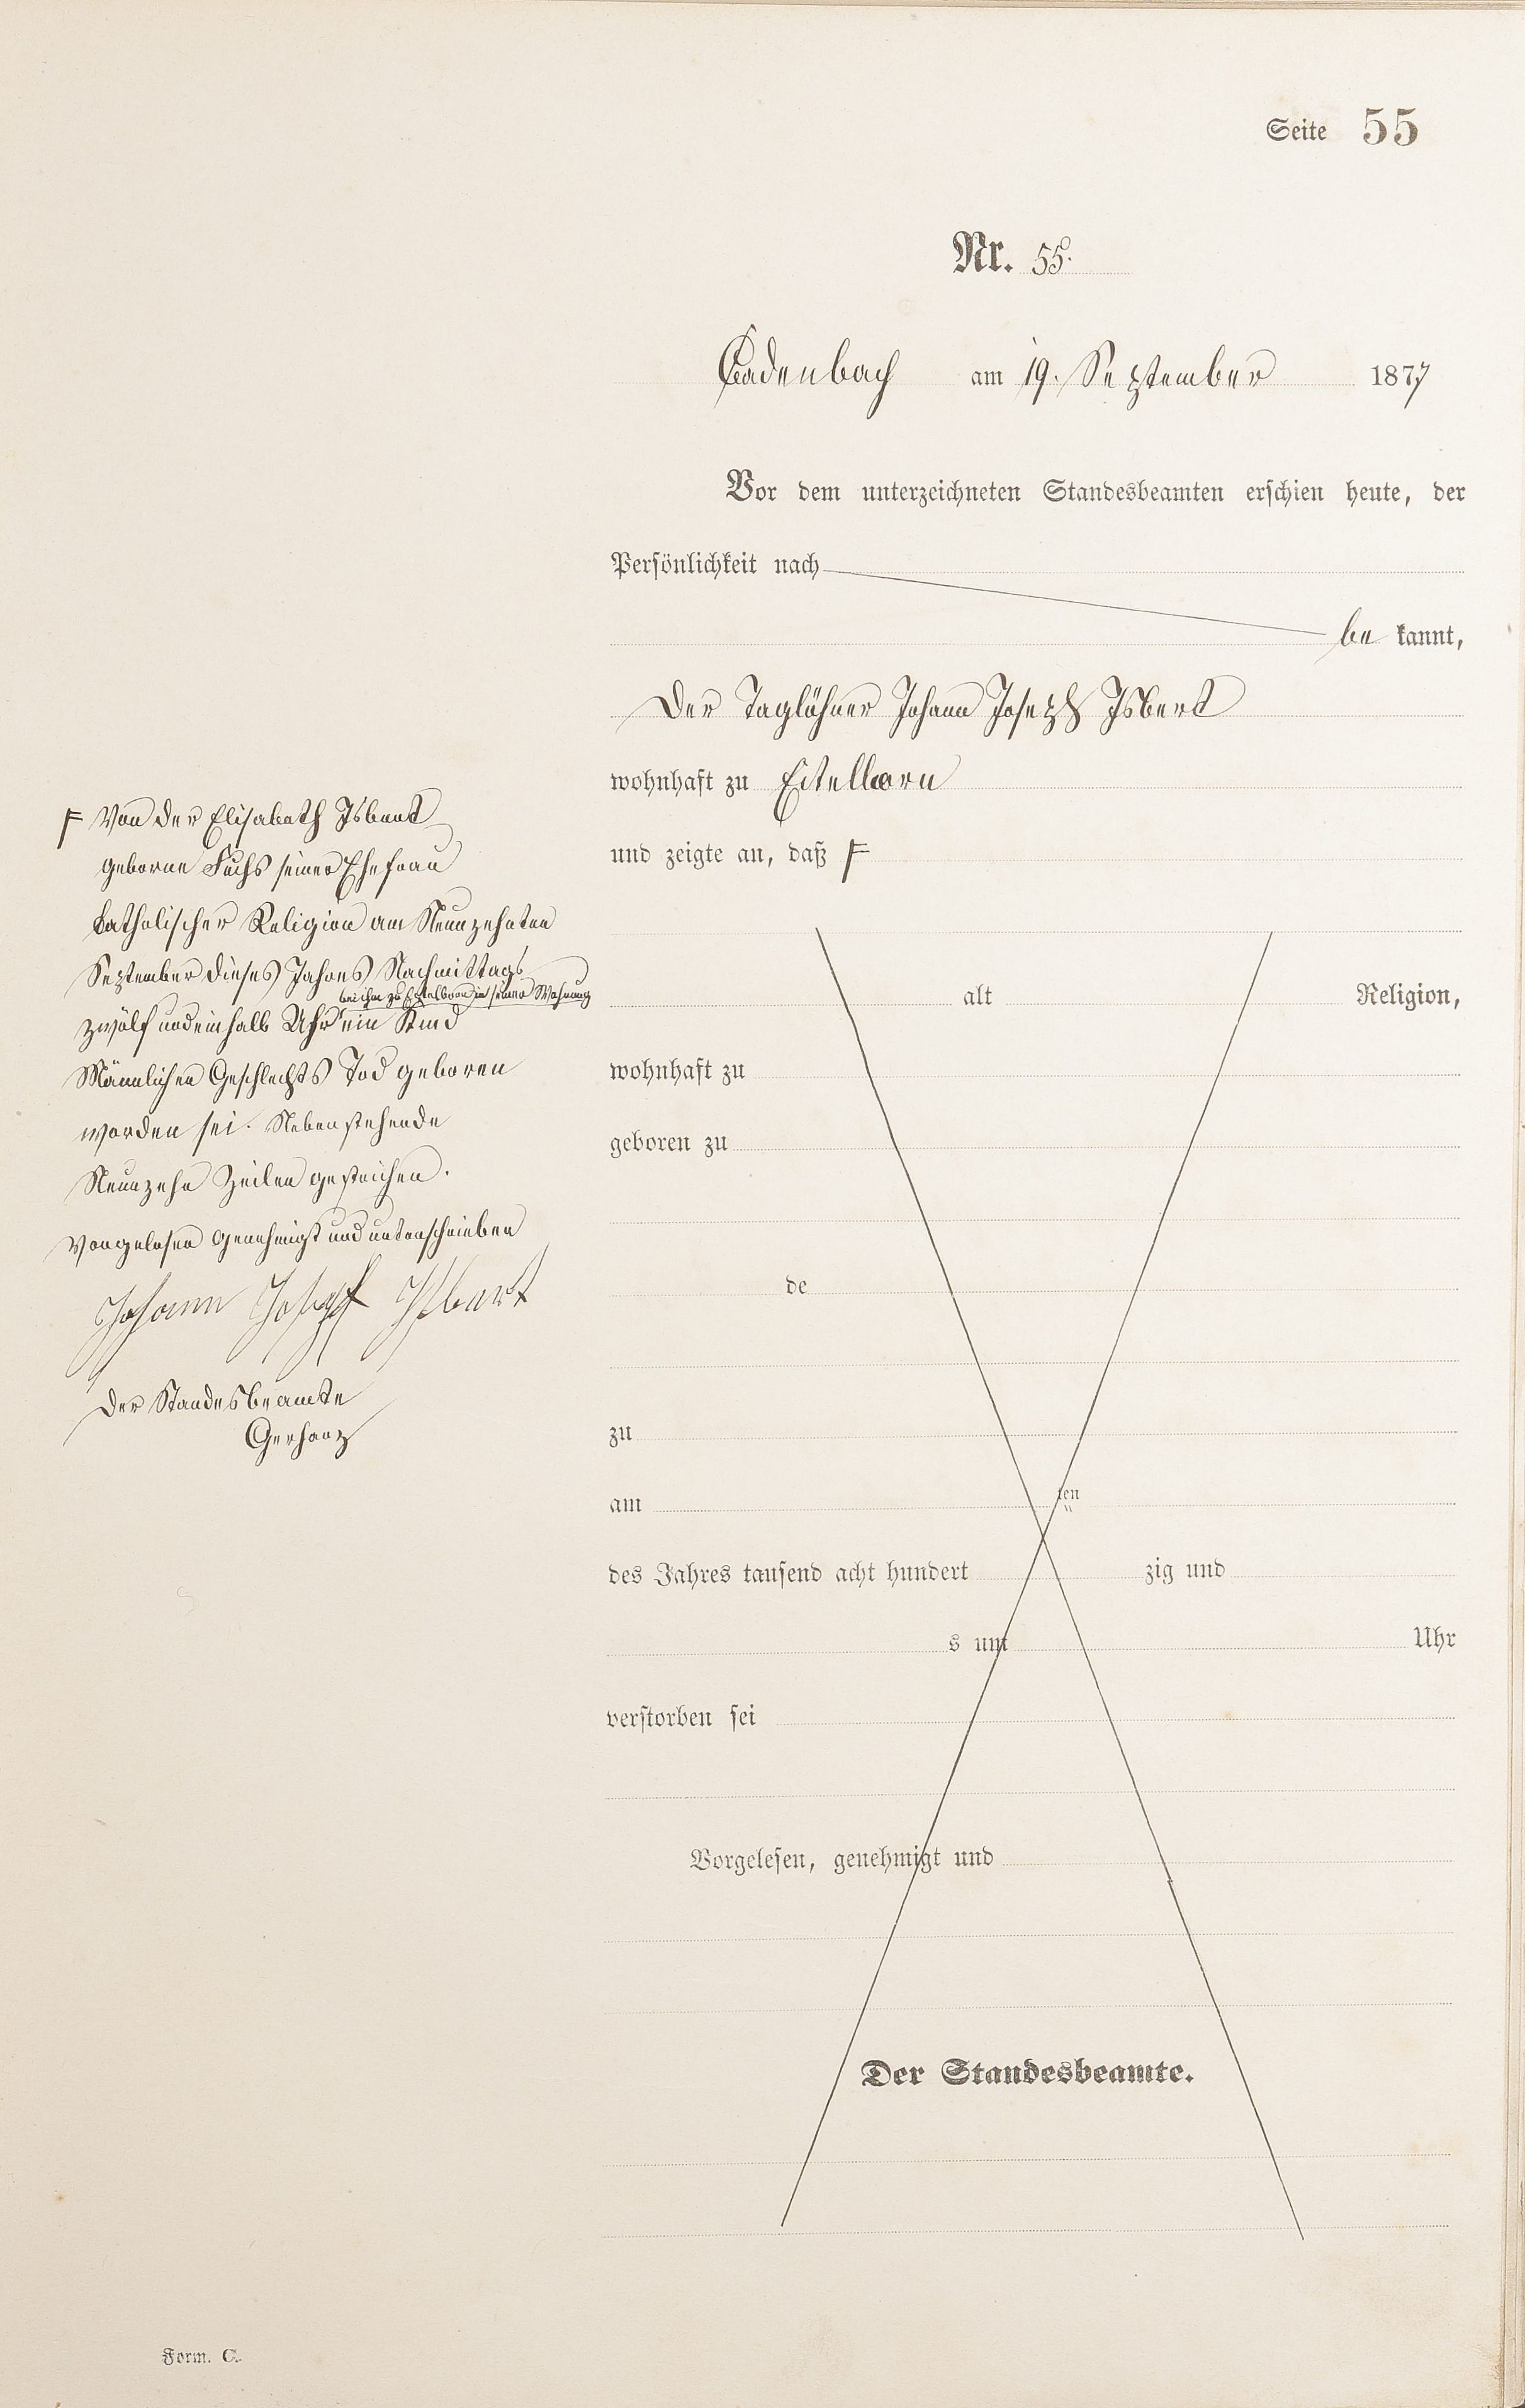 Seite 55
Nr. 55.
Cadenbach am 19. September 1877
Vor dem unterzeichneten Standesbeamten erschien heute, der
Persönlichkeit nach
be kannt,
Der Taglöhner Johann Joseph Isbert
wohnhaft zu Eitelborn
und zeigte an, daß F
F Von der Elisabeth Isbert
geborne Fuchs seiner Ehefrau
katholischer Religion am Neunzehnten
September dieses Jahres Nachmittags
bei ihm zu Eitelborn in seiner Wohnung
zwölf und einhalb Uhr ein Kind
Männlichen Geschlechts Tod geboren
worden sei. Nebenstehende
Neunzehn Zeilen gestrichen.
Vorgelesen genehmigt und unterschrieben
Johann Joseph Isbert
Der Standesbeamte
Gerhanz
alt Religion,
wohnhaft zu
geboren zu
de
zu
am ten
des Jahres tausend acht hundert zig und
s um Uhr
verstorben sei
Vorgelesen, genehmigt und
Der Standesbeamte.
Form. C.